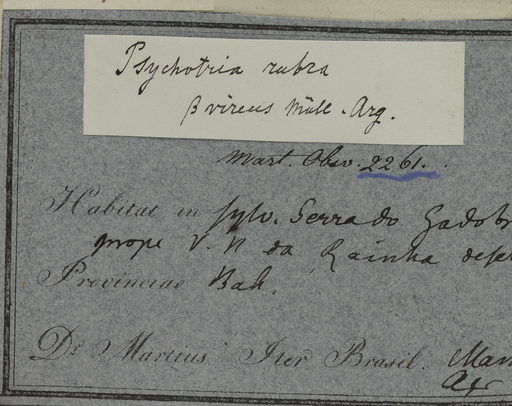 Psychotria rubra
β virens Müll. Arg.
Mart. Obs. 2261.
Habitat in sylv. Serra do Gado br
prope V. N da Rainha deser
Provinciae Bah.
Dr. Martius Iter Brasil. Mart